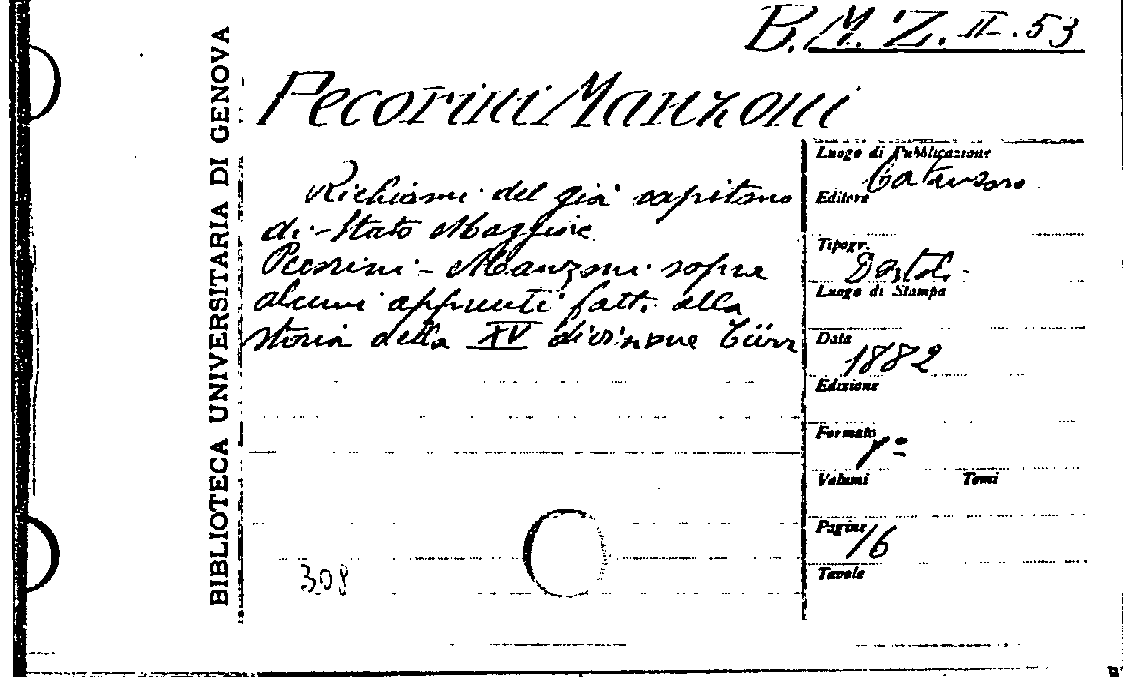 B.M.Z. II. 53
BIBLIOTECA UNIVERSITARIA DI GENOVA
Pecorini Manzoni
Richiami del già capitano
di Stato Maggiore
Pecorini-Manzoni sopra
alcuni appunti fatti alla
storia della XV divisione Türr
Luogo di Pubblicazione
Catanzaro
Editore
Tipogr.
Luogo di Stampa
Data
1882
Edizione
Formato
Volumi Tomi
Pagine
16
Tavole
308